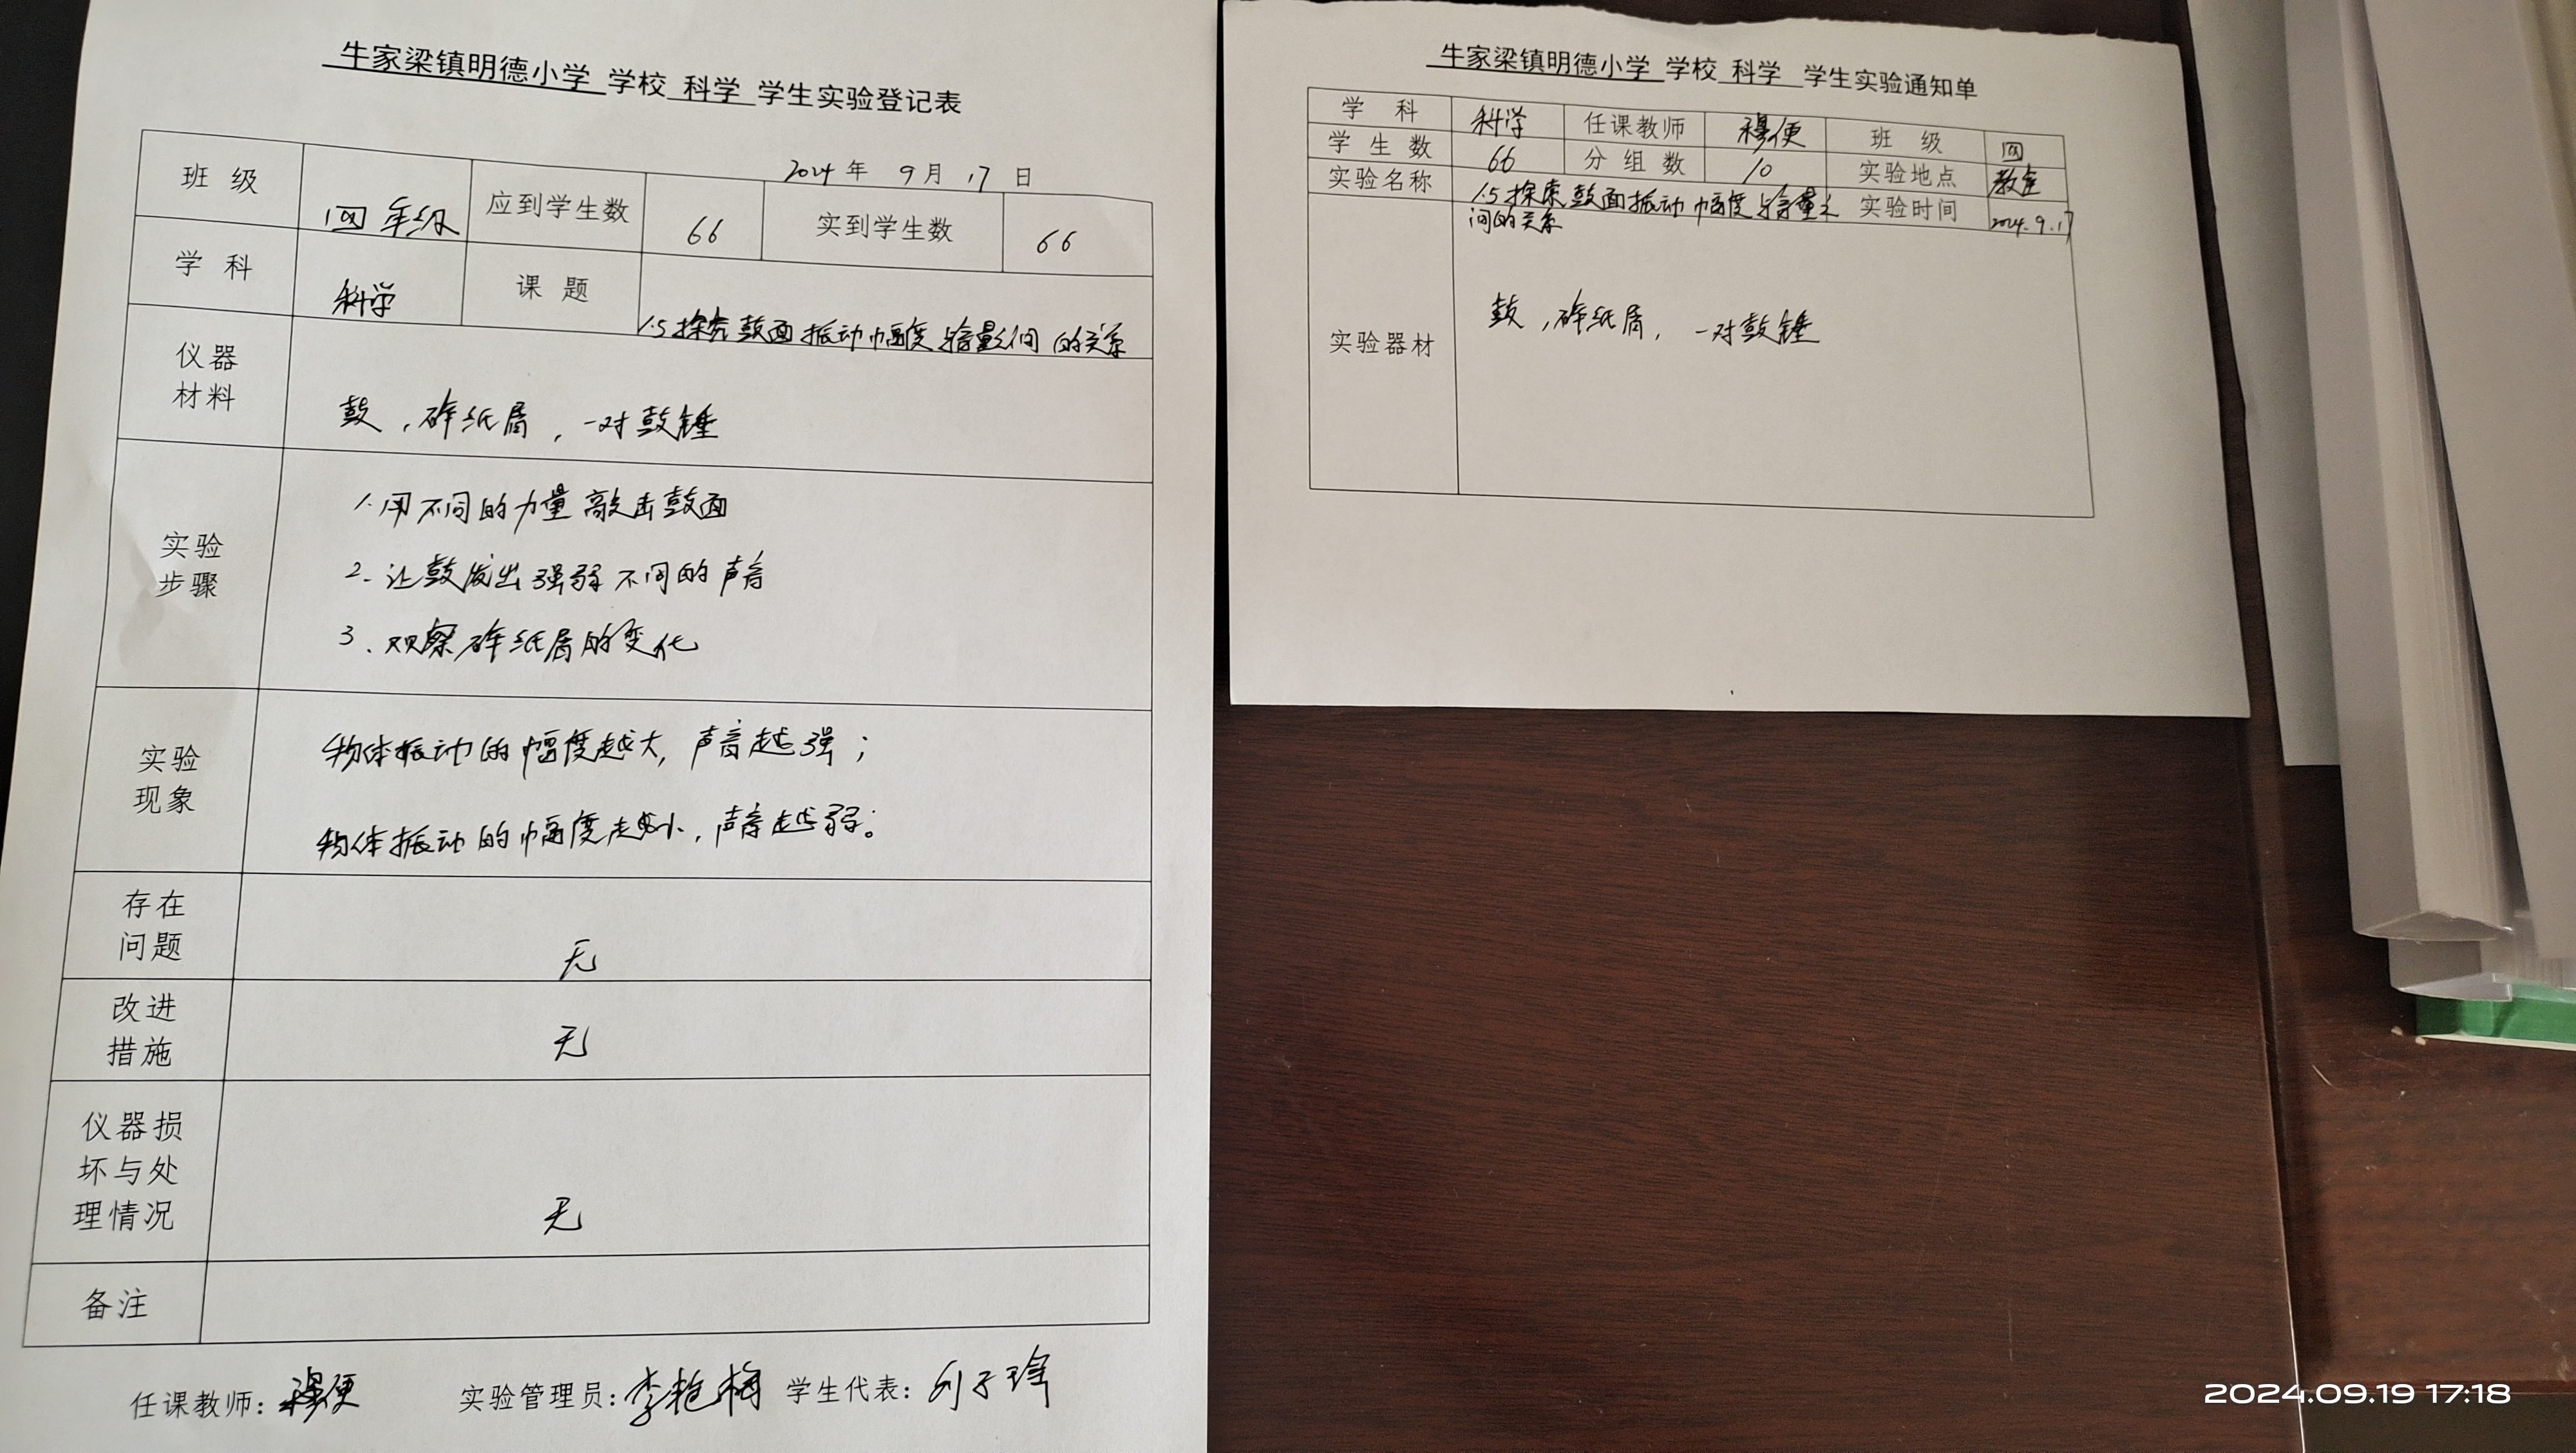 牛家梁镇明德小学 学校 科学 学生实验登记表
2024 年 9 月 17 日
班 级 四年级 应到学生数 66 实到学生数 66
学 科 科学 课 题 1.5探究鼓面振动幅度与音量之间的关系
仪器
材料
鼓,碎纸屑,一对鼓锤
实验
步骤
1.用不同的力量敲击鼓面
2.让鼓发出强弱不同的声音
3.观察碎纸屑的变化
实验
现象
物体振动的幅度越大,声音越强;
物体振动的幅度越小,声音越弱。
存在
问题
无
改进
措施
无
仪器损
坏与处
理情况
无
备注
任课教师: 穆便 实验管理员:李艳梅 学生代表:刘子
牛家梁镇明德小学 学校 科学 学生实验通知单
学 科 科学 任课教师 穆便 班 级 四
学 生 数 66 分 组 数 10 实验地点 教室
实验名称 1.5探索鼓面振动幅度与音量之
间的关系
实验时间 2024.9.17
实验器材 鼓,碎纸屑,一对鼓锤
2024.09.19 17:18